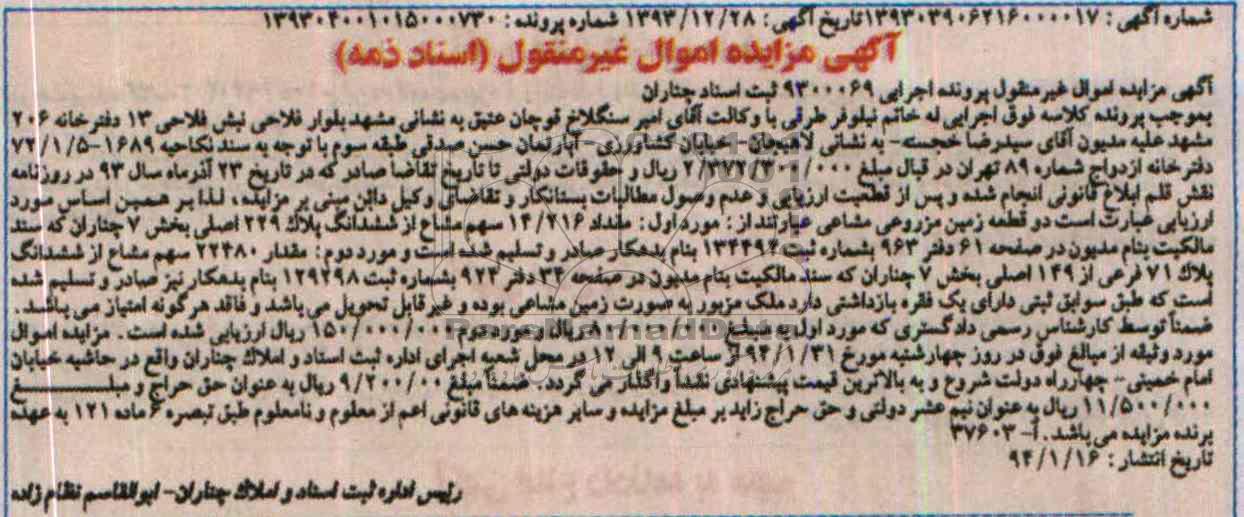 شماره آگهی: ۱۳۹۳۰۳۹۰۶۲۱۶۰۰۰۰۱۷ تاریخ آگهی: ۱۳۹۳/۱۲/۲۸ شماره پرونده: ۱۳۹۳۰۴۰۰۱۰۱۵۰۰۰۷۳۰
آگهی مزایده اموال غیرمنقول (اسناد ذمه)
آگهی مزایده اموال غیرمنقول پرونده اجرایی ۹۳۰۰۰۶۹ ثبت اسناد چناران
بموجب پرونده کلاسه فوق اجرایی له خانم نیلوفر طرقی با وکالت آقای امیر سنگلاخ قوچان عتیق به نشانی مشهد بلوار فلاحی نبش فلاحی ۱۳ دفترخانه ۲۰۶
مشهد علیه مدیون آقای سیدرضا خجسته- به نشانی لاهیجان- خیابان کشاورزی- آپارتمان حسن صدقی طبقه سوم با توجه به سند نکاحیه ۱۶۸۹-۷۲/۱/۵
دفترخانه ازدواج شماره ۸۹ تهران در قبال مبلغ ۲/۳۷۲/۳۰۱/۰۰۰ ریال و حقوقات دولتی تا تاریخ تقاضا صادر که در تاریخ ۲۳ آذرماه سال ۹۳ در روزنامه
نقش قلم ابلاغ قانونی انجام شده و پس از قطعیت ارزیابی و عدم وصول مطالبات بستانکار و تقاضای وکیل دائن مبنی بر مزایده، لذا بر همین اساس مورد
ارزیابی عبارت است دو قطعه زمین مزروعی مشاعی عبارتند از: مورد اول: مقداد ۱۴/۲۱۶ سهم مشاع از ششدانگ پلاک ۲۲۹ اصلی بخش ۷ چناران که سند
مالکیت بنام مدیون در صفحه ۶۱ دفتر ۹۶۳ بشماره ثبت ۱۳۴۴۹۴ بنام بدهکار صادر و تسلیم شده است و مورد دوم: مقدار ۲۲۴۸۰ سهم مشاع از ششدانگ
پلاک ۷۱ فرعی از ۱۴۹ اصلی بخش ۷ چناران که سند مالکیت بنام مدیون در صفحه ۳۴ دفتر ۹۲۳ بشماره ثبت ۱۲۹۲۹۸ بنام بدهکار نیز صادر و تسلیم شده
است که طبق سوابق ثبتی دارای یک فقره بازداشتی دارد ملک مزبور به صورت زمین مشاعی بوده و غیرقابل تحویل می‌باشد و فاقد هرگونه امتیاز می‌باشد.
ضمناً توسط کارشناس رسمی دادگستری که مورد اول به مبلغ ۸۰/۰۰۰/۰۰۰ ریال و مورد دوم ۱۵۰/۰۰۰/۰۰۰ ریال ارزیابی شده است. مزایده اموال
مورد وثیقه از مبالغ فوق در روز چهارشنبه مورخ ۹۴/۱/۳۱ از ساعت ۹ الی ۱۲ در محل شعبه اجرای اداره ثبت اسناد و املاک چناران واقع در حاشیه خیابان
امام خمینی- چهارراه دولت شروع و به بالاترین قیمت پیشنهادی نقداً واگذار می گردد. ضمناً مبلغ ۹/۲۰۰/۰۰ ریال به عنوان حق حراج و مبلغ
۱۱/۵۰۰/۰۰۰ ریال به عنوان نیم عشر دولتی و حق حراج زاید بر مبلغ مزایده و سایر هزینه های قانونی اعم از معلوم و نامعلوم طبق تبصره ۶ ماده ۱۲۱ به عهده
برنده مزایده می باشد. آ- ۳۷۶۰۳
تاریخ انتشار: ۹۴/۱/۱۶
رئیس اداره ثبت اسناد و املاک چناران- ابوالقاسم نظام زاده